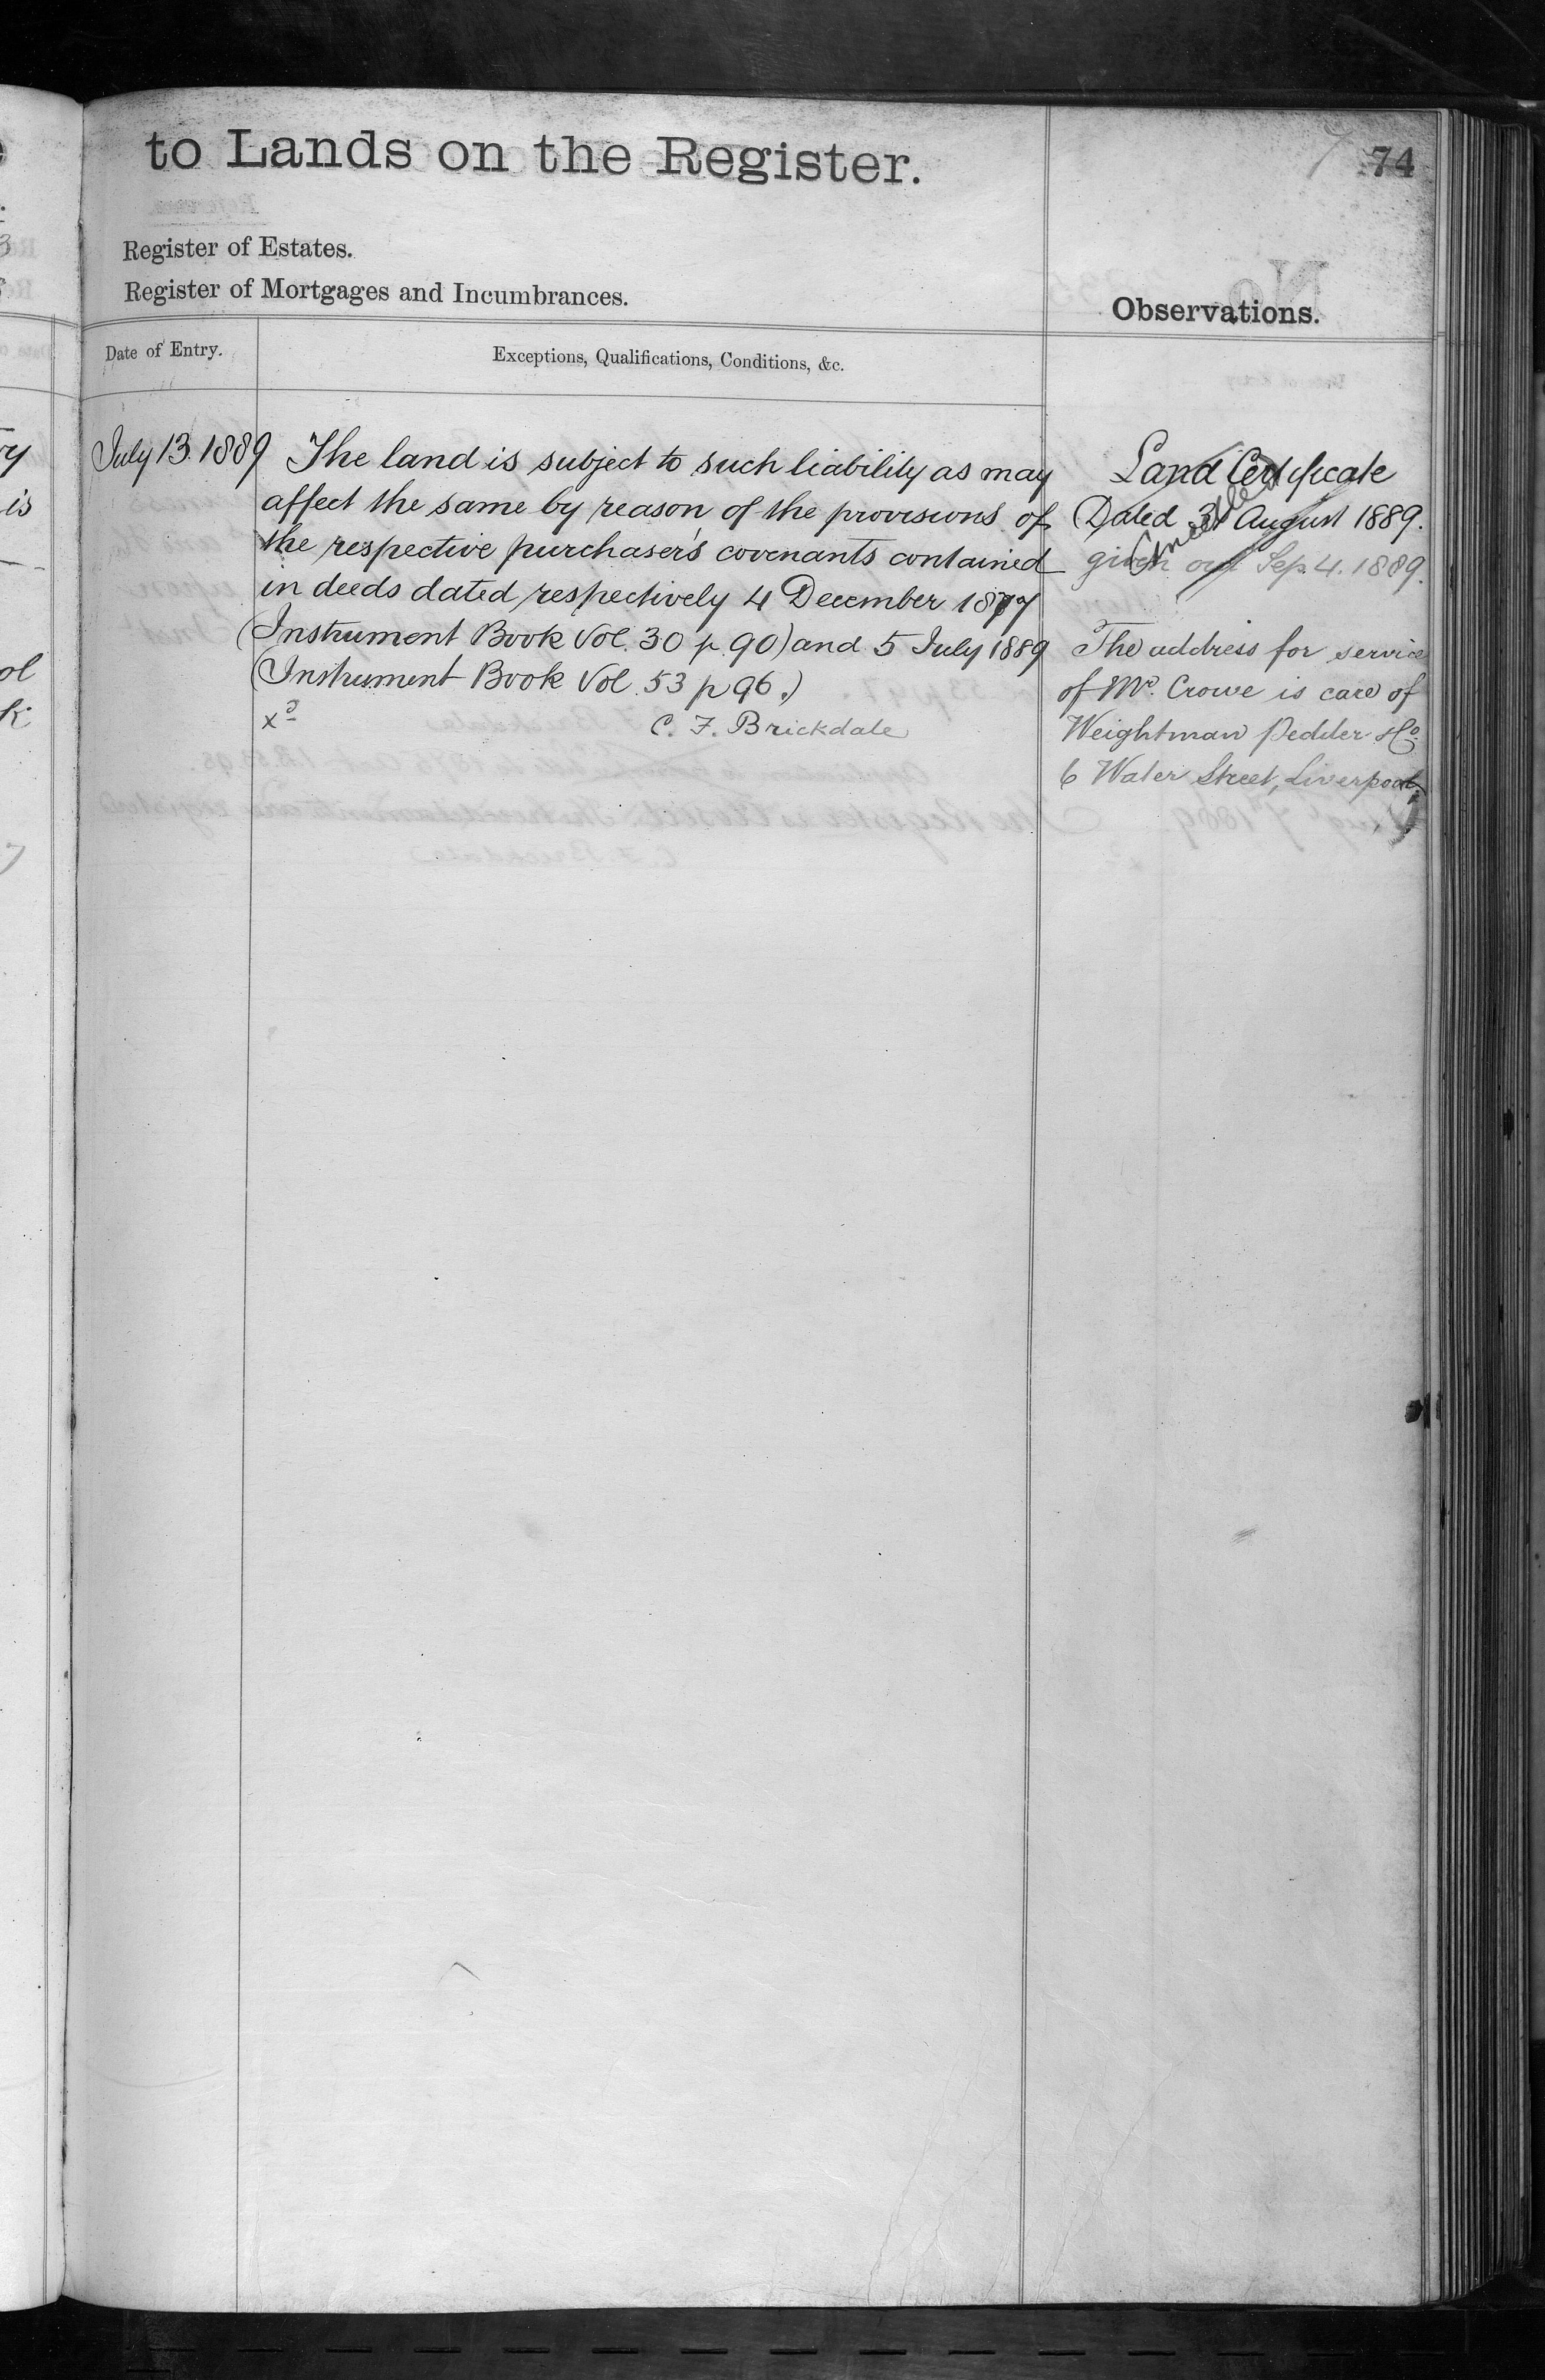 to Lands on the Register.
74
Register of Estates.
Register of Mortgages and Incumbrances.
Observations.
Date of Entry.
Exceptions, Qualifications, Conditions, &c.
July 13. 1889
The land is subject to such liability as may
affect the same by reason of the provisions of
the respective purchaser's covenants contained
in deeds dated respectively 4 December 1877
(Instrument Book Vol. 30 p. 90) and 5 July 1889
(Instrument Book Vol. 53 p 96.)
C. F. Brickdale
Land Certificate
Dated 31 August 1889.
given out Sep. 4. 1889.
Cancelled
The address for service
of Mr. Crowe is care of
Weightman Pedder & Co.
6 Water Street, Liverpool.